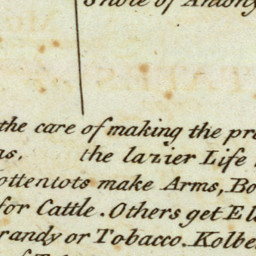 of Antony
the care of making the pr
as, the lazier Life
ottentots make Arms, Bo
for Cattle. Others get El
randy or Tobacco. Kolbe